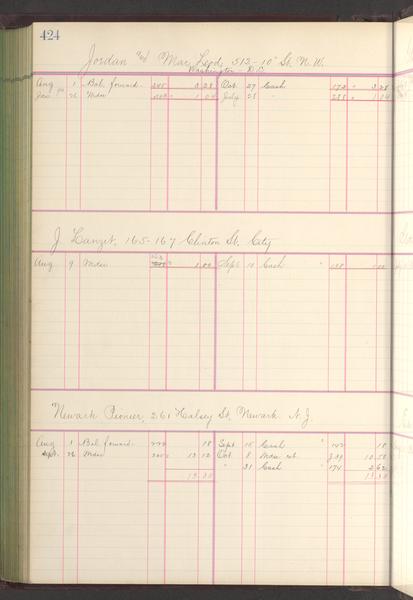 424
Jordan & Mac Leod, 513-10" St. N. W.
Washington D.C.
Aug 1 Bal. forward. 3 28 Oct. 27 Cash 172 " 3 28
Jan. 26 Mdse 1 04 July 28 " 288 " 1 04
J. Lanzit, 165-167 Clinton St. City
Aug 9 Mdse Sept. Cash "
Newark Pionier, 261 Halsey St. Newark. N. J.
Aug 1 Bal. forward. 18 Sept. 15 Cash " 142 18
Sept. 26 Mdse 13 12 Oct. 8 Mdse ret. 10 50
" 31 Cash " 174 2 62
13 30 13 30